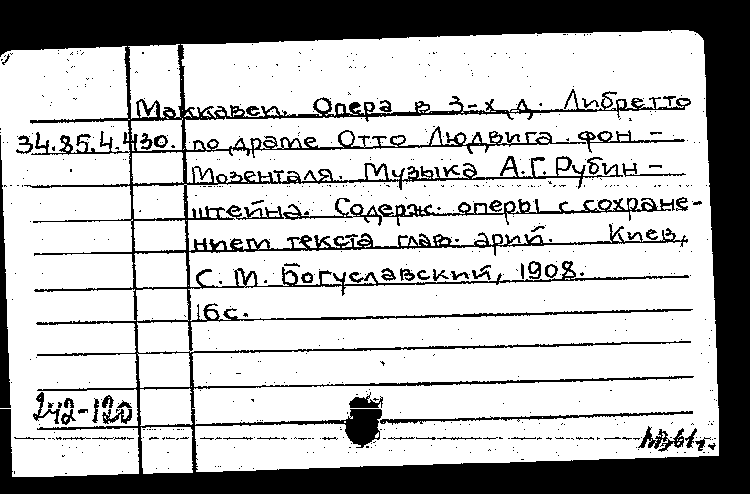 Маккавеи. Опера в 3-х д. Либретто
34.85.4.430. по драме Отто Людвига фон-
Мозенталя. Музыка А.Г. Рубин-
штейна. Содерж. оперы с сохране-
нием текста глав. арий. Киев,
С. М. Богуславский, 1908.
16 с.
242-120